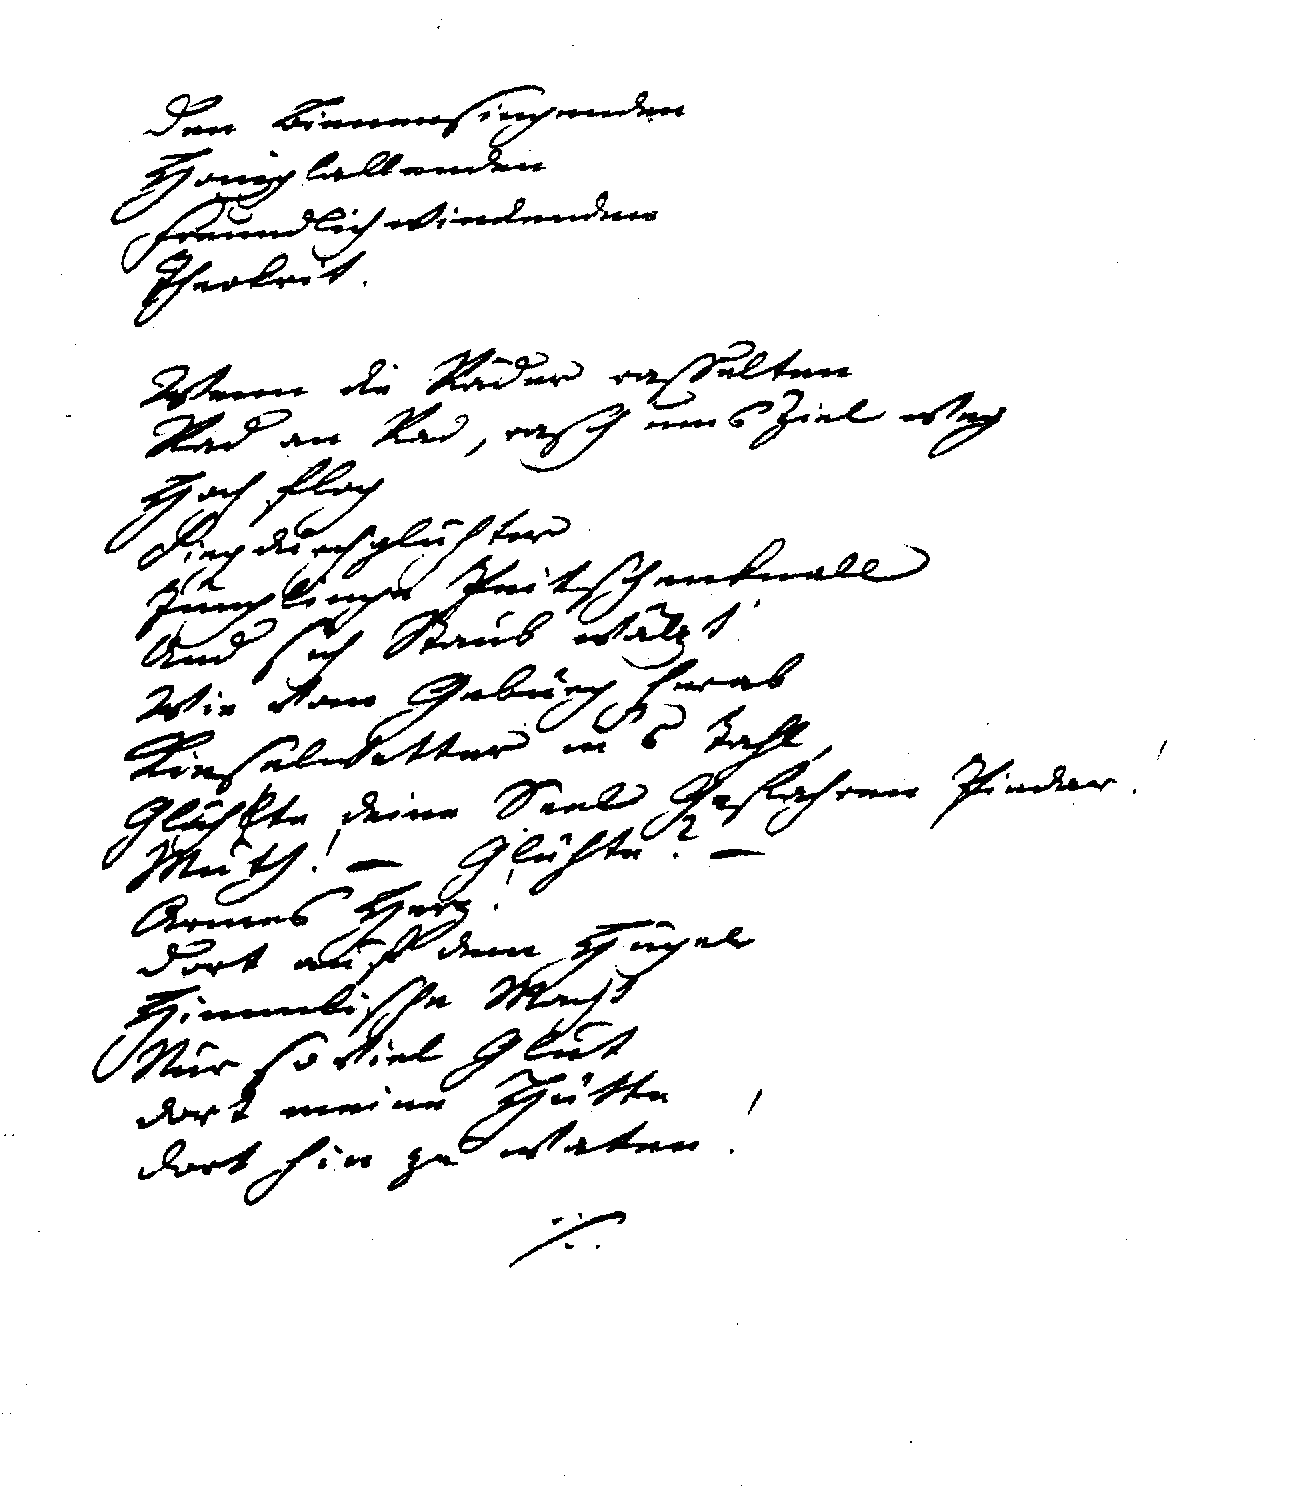 Den Bienensingenden
Honiglallenden
Freundlichwinckenden
Theokrit.
Wenn die Räder rasselten
Rad an Rad, rasch ums Ziel weg
Hoch flog
Siegdurchglühter
Jünglinge Peitschenknall
Und sich Staub wälzt
Wie vom Gebürg herab
Kieselwetter in's Tahl,
Glühte deine Seel Gefahren Pindar!
Muth! — Glühte? —
Armes Herz!
Dort auf dem Hügel
Himmlische Macht
Nur so viel Glut
Dort meine Hütte
Dort hin zu waten!